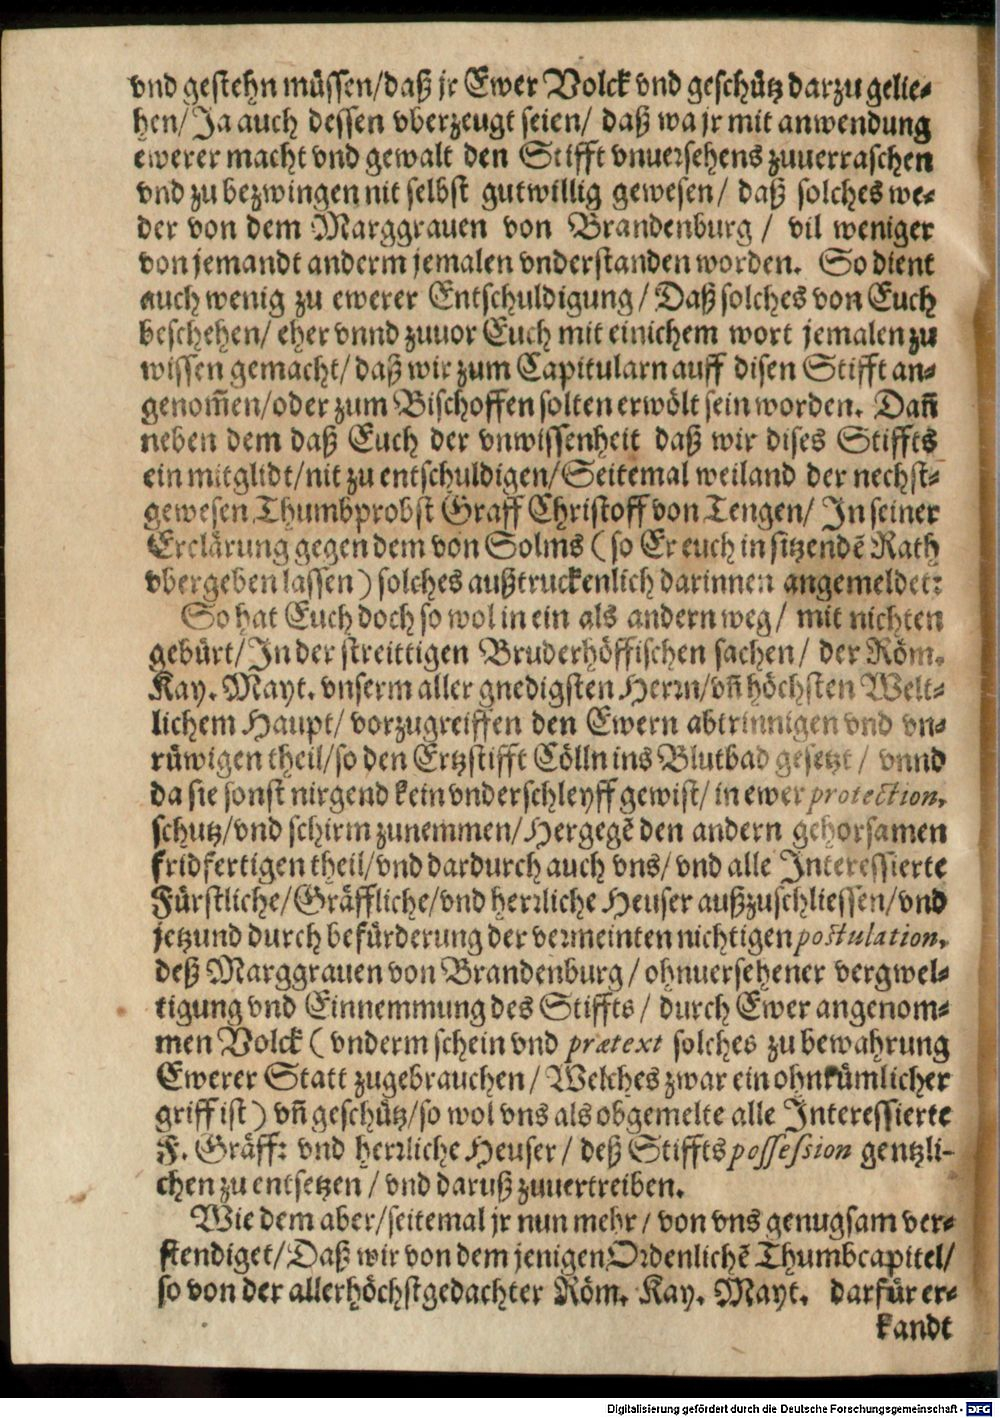 vnd gestehn müssen/daß jr Ewer Volck vnd geschütz darzu gelie-
hen/Ja auch dessen vberzeugt seien/ daß wa jr mit anwendung
ewerer macht vnd gewalt den Stifft vnuersehens zuuerraschen
vnd zu bezwingen nit selbst gutwillig gewesen/ daß solches we-
der von dem Marggrauen von Brandenburg / vil weniger
von jemandt anderm jemalen vnderstanden worden. So dient
auch wenig zu ewerer Entschuldigung/Daß solches von Euch
beschehen/ eher vnnd zuuor Euch mit einichem wort jemalen zu
wissen gemacht/daß wir zum Capitularn auff disen Stifft an-
genom̄en/oder zum Bischoffen solten erwölt sein worden. Dañ
neben dem daß Euch der vnwissenheit daß wir dises Stiffts
ein mitglidt/nit zu entschuldigen/Seitemal weiland der nechst-
gewesen Thumbprobst Graff Christoff von Tengen/ In seiner
Erclärung gegen dem von Solms (so Er euch in sitzendē Rath
vbergeben lassen) solches außtruckenlich darinnen angemeldet:
So hat Euch doch so wol in ein als andern weg/ mit nichten
gebürt/In der streittigen Bruderhöffischen sachen/ der Röm.
Kay. Mayt. vnserm aller gnedigsten Herrn/vñ höchsten Welt-
lichem Haupt/ vorzugreiffen den Ewern abtrinnigen vnd vn-
rüwigen theil/so den Ertzstifft Cölln ins Blutbad gesetzt / vnnd
da sie sonst nirgend kein vnderschleyff gewist/ in ewer protection,
schutz/vnd schirm zunemmen/Hergegē den andern gehorsamen
fridfertigen theil/vnd dardurch auch vns/ vnd alle Interessierte
Fürstliche/Gräffliche/vnd herrliche Heuser außzuschliessen/vnd
jetzund durch befürderung der vermeinten nichtigen postulation,
deß Marggrauen von Brandenburg/ ohnuersehener vergwel-
tigung vnd Einnemmung des Stiffts/ durch Ewer angenom-
men Volck ( vnderm schein vnd prætext solches zu bewahrung
Ewerer Statt zugebrauchen/ Welches zwar ein ohnkümlicher
griff ist) vñ geschütz/so wol vns als obgemelte alle Interessierte
F. Gräff: vnd herrliche Heuser/ deß Stiffts possession gentzli-
chen zu entsetzen / vnd daruß zuuertreiben.
Wie dem aber/seitemal jr nun mehr/ von vns genugsam ver-
stendiget/Daß wir von dem jenigen Ordenlichē Thumbcapitel/
so von der allerhöchstgedachter Röm. Kay. Mayt. darfür er-
kandt
Digitalisierung gefördert durch die Deutsche Forschungsgemeinschaft - DFG